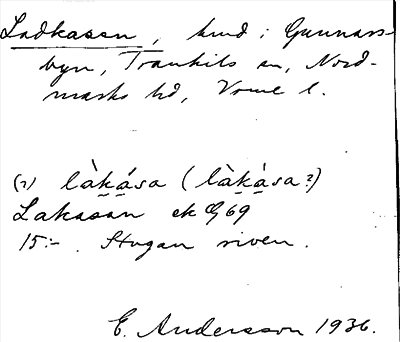 Ladkasan, hmd i Gunnars-
byn, Trankils sn, Nord-
marks hd, Vrml l.
(?) làkása (làkàsa?)
Lakasan ek G 69
15:- . Stugan riven.
E. Andersson 1936.